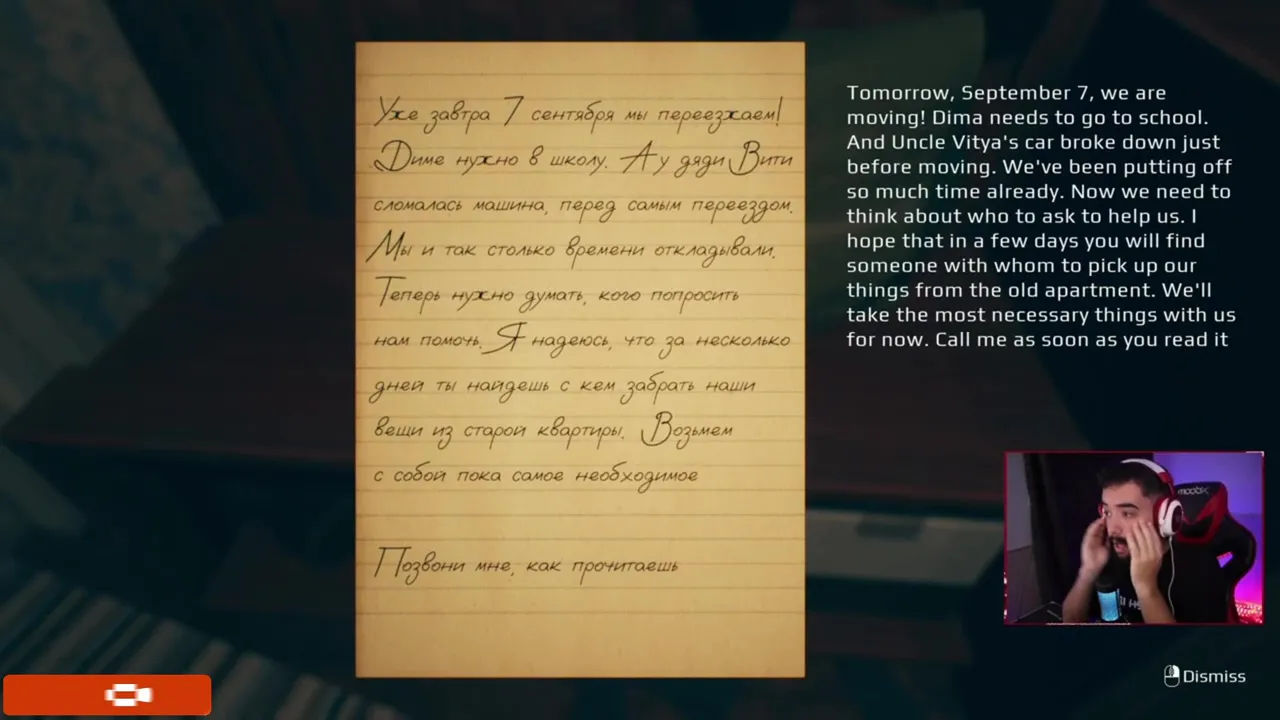 Уже завтра 7 сентября мы переезжаем!
Диме нужно в школу. А у дяди Вити
сломалась машина, перед самым переездом.
Мы и так столько времени откладывали.
Теперь нужно думать, кого попросить
нам помочь. Я надеюсь, что за несколько
дней ты найдешь с кем забрать наши
вещи из старой квартиры. Возьмем
с собой пока самое необходимое
Позвони мне, как прочитаешь
Tomorrow, September 7, we are
moving! Dima needs to go to school.
And Uncle Vitya's car broke down just
before moving. We've been putting off
so much time already. Now we need to
think about who to ask to help us. I
hope that in a few days you will find
someone with whom to pick up our
things from the old apartment. We'll
take the most necessary things with us
for now. Call me as soon as you read it
Dismiss